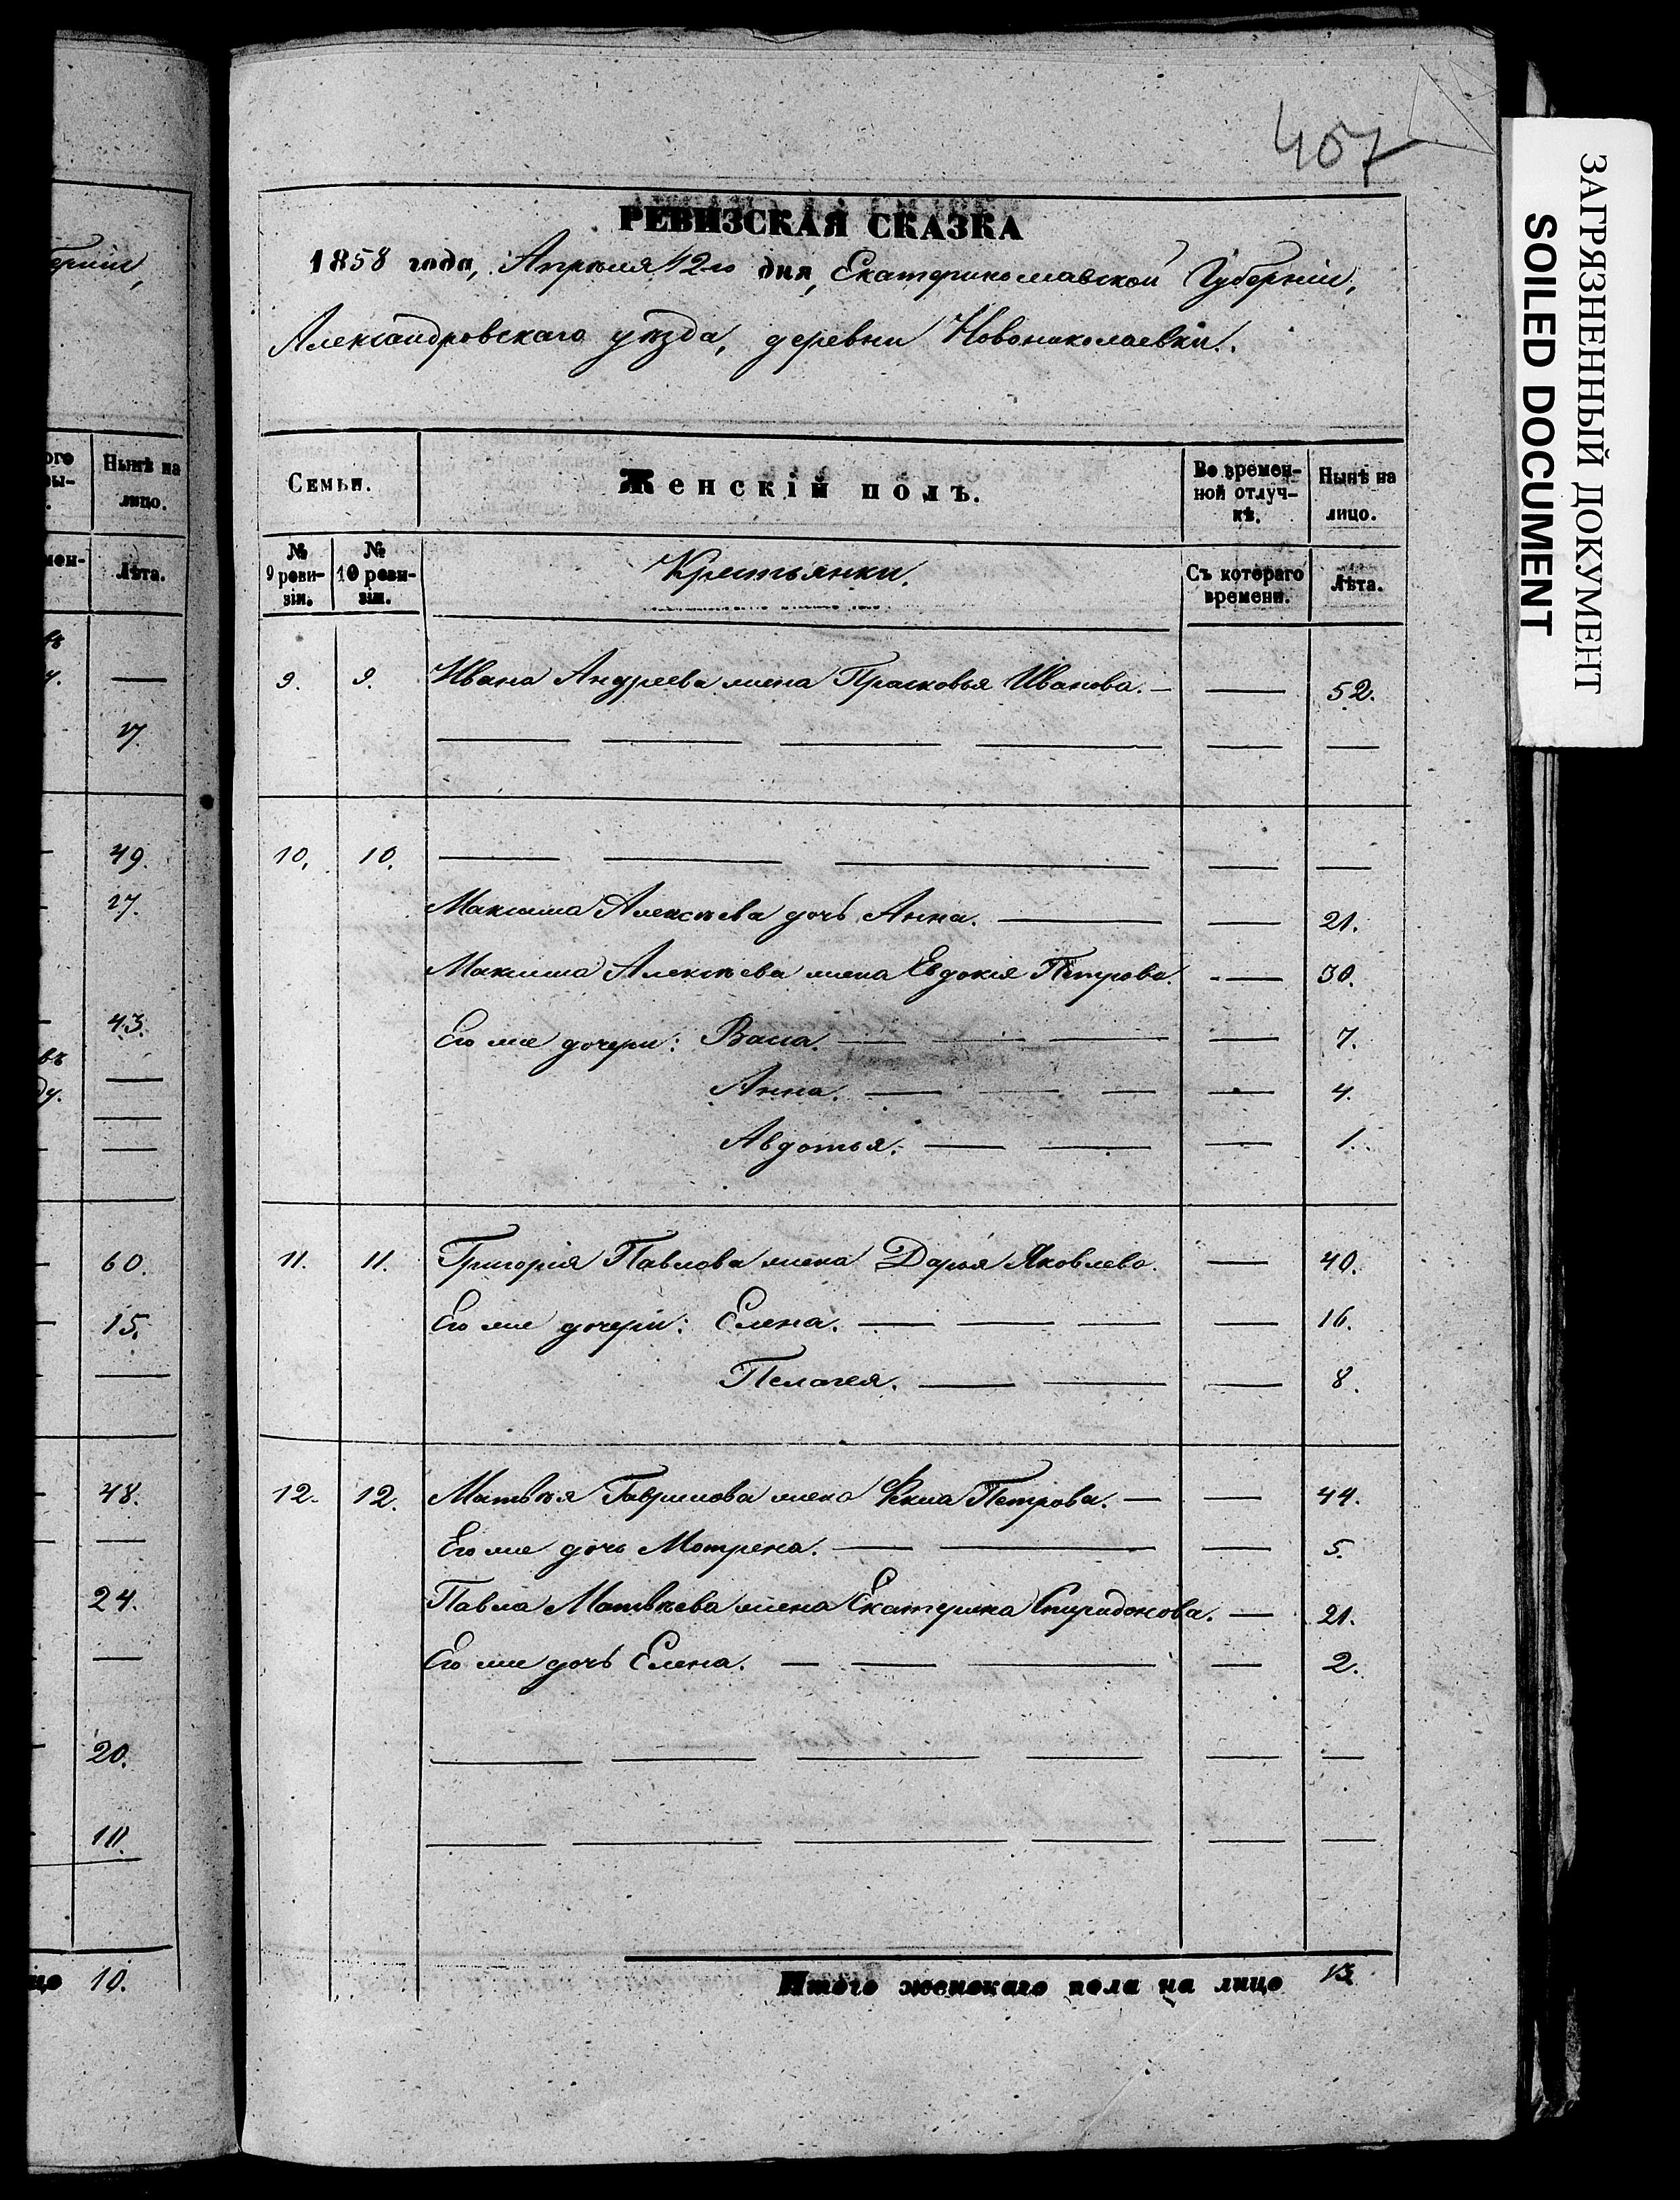 457
РЕВИЗСКАЯ СКАЗКА
1858 года, Апрѣля 12го дня, Екатеринославской Губерніи,
Александровскаго уѣзда, деревни Новониколаевки.
Семьи.
Женскій полъ.
Во времен-
ной отлуч-
кѣ.
Нынѣ на
лицо.
№
9 реви-
зіи.
№
10 реви-
зіи.
Крестьянки.
Съ котораго
времени.
Лѣта.
9. 9. Ивана Андреева жена Прасковья Иванова. — — 52.
10. 10.
Максима Алексѣева дочь Анна. — — 21.
Максима Алексѣева жена Евдокія Петрова. — 30.
Его же дочери: Васа. — — 7.
Анна. — — 4.
Авдотья. — — 1.
11. 11. Григорія Павлова жена Дарья Яковлева. — 40.
Его же дочери: Елена. — — 16.
Пелагея. — — 8.
12. 12. Матвѣя Гаврилова жена Фкла Петрова. — — 44.
Его же дочь Мотрена. — — 5.
Павла Матвѣева жена Екатерина Спиридонова. — 21.
Его же дочь Елена. — — 2.
Итого женскаго пола на лицо 13
ерніи,
Нынѣ на
лицо.
Лѣта.
17.
49.
17.
43.
60.
15.
48.
24.
20.
10.
ЗАГРЯЗНЕННЫЙ ДОКУМЕНТ
SOILED DOCUMENT